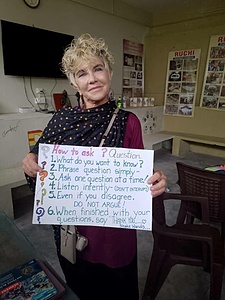 RUCHI
How to ask ? Question
1. What do you want to know?
2. Phrase question simply-
3. Ask one question at a time!
4. Listen intently- (DON'T INTERRUPT)
5. Even if you disagree,
DO NOT ARGUE!
6. When finished with your
questions, say